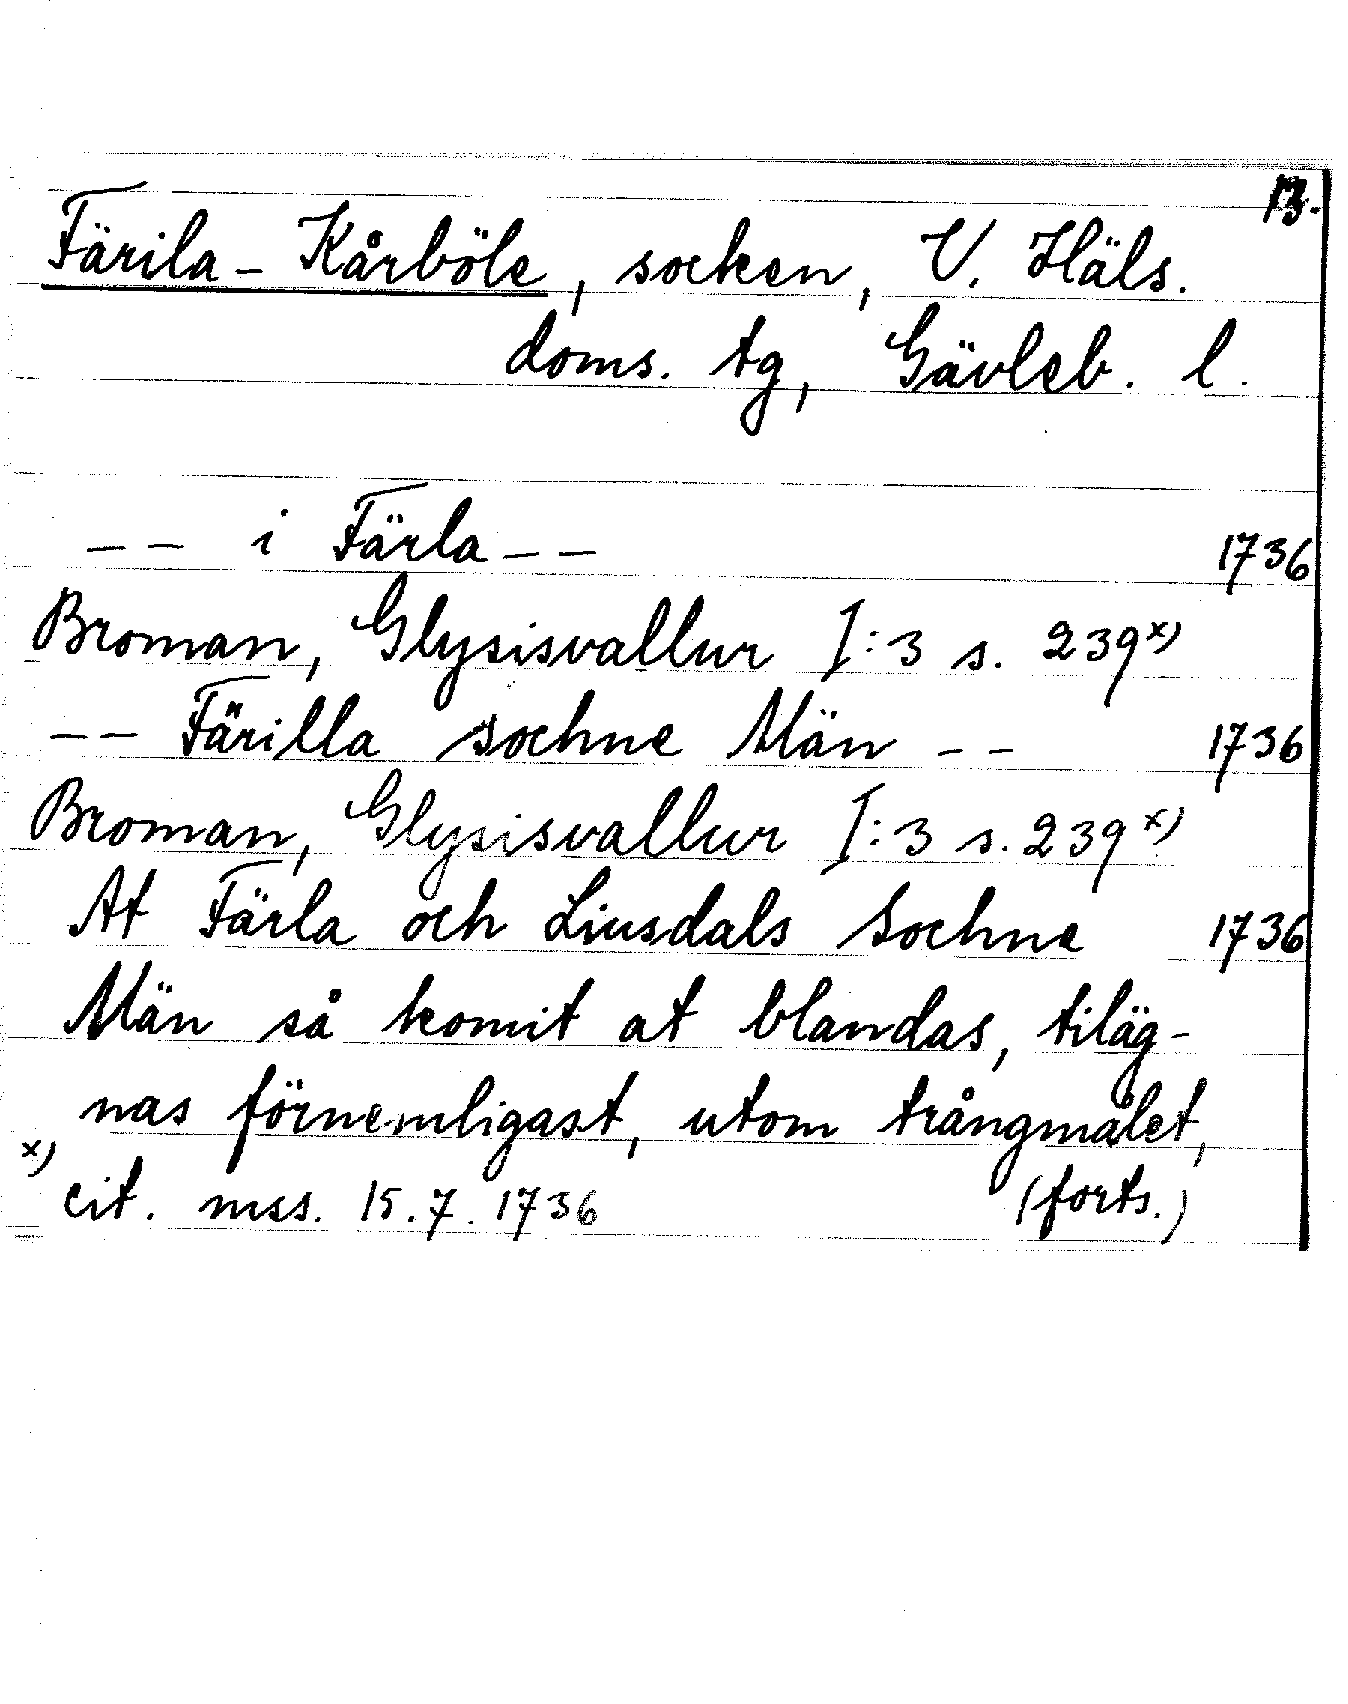 13.
Färila-Kårböle, socken, V. Häls.
doms. tg, Gävleb. l.
-- i Färla -- 1736
Broman, Glysisvallur I:3 s. 239x)
-- Färilla sochne Män -- 1736
Broman, Glysisvallur I:3 s. 239x)
At Färla och Liusdals Sochne 1736
Män så komit at blandas, tiläg-
nas förnemligast, utom trångmålet,
x) cit. mss. 15.7.1736 (forts.)